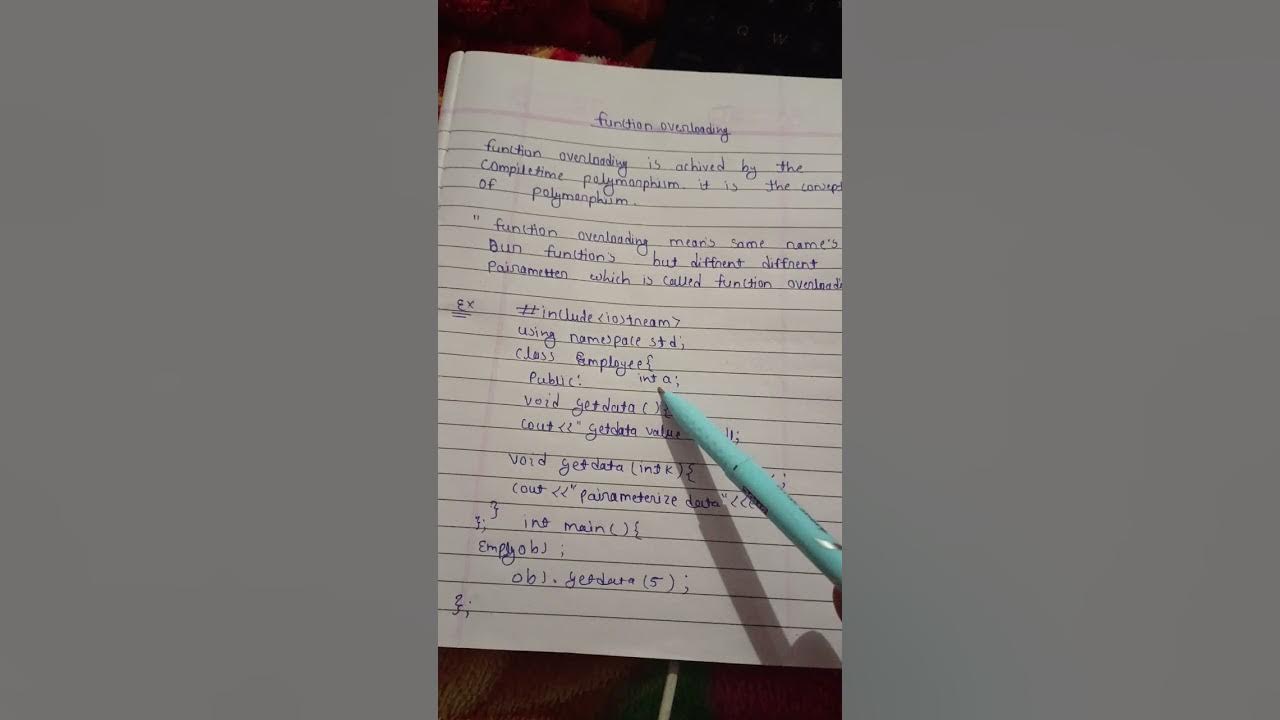 function overloading
function overloading is achived by the
compiletime polymorphism. it is the concept
of polymorphism.
" function overloading mean's same name's
function's but diffrent diffrent
Pairametter which is called function overloadi
Ex #include<iostream>
using namespace std;
Class Employee{
Public: int a;
void getdata(){
cout<<" getdata value ";
void getdata (int k){ ;
cout <<"Pairameterize data"<<
}
}; int main(){
obj ;
obj. getdata (5);
};
Q W